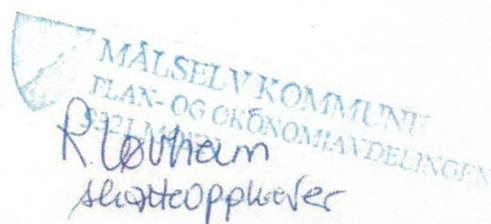 MÅLSELV KOMMUNE
PLAN- OG ØKONOMIAVDELINGEN
9321 M
R. Løvham
skatteoppkrever